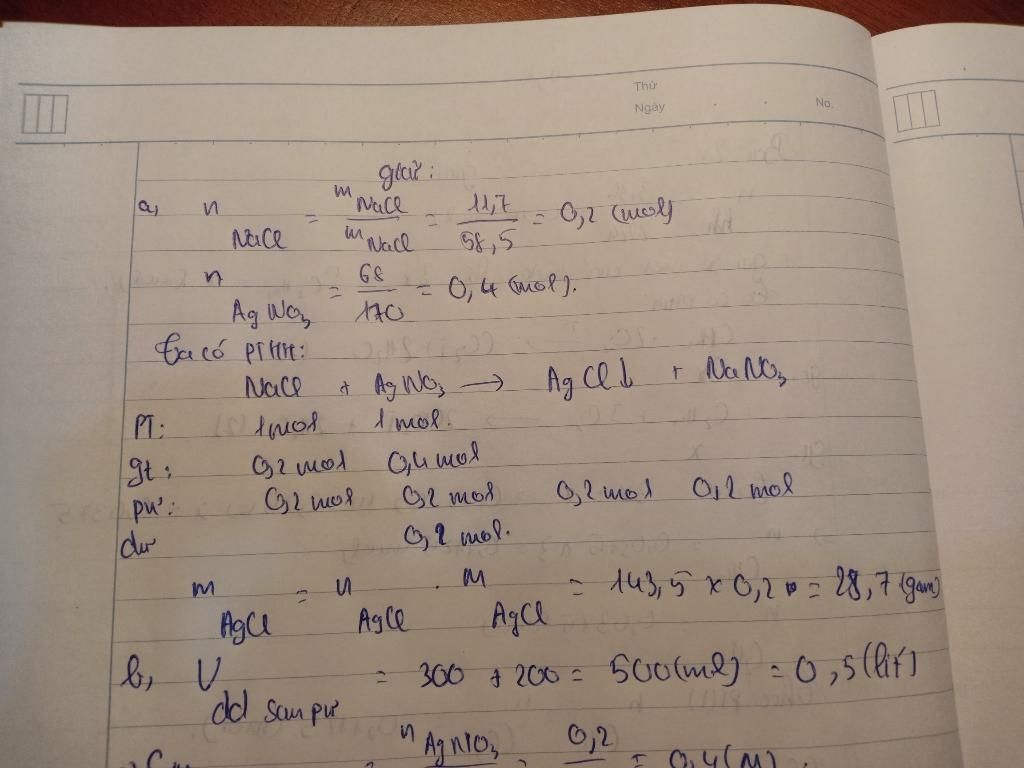 Thứ
Ngày . . No.
giải:
a, n NaCl = m NaCl / m NaCl = 11,7 / 58,5 = 0,2 (mol)
n AgNO3 = 68 / 170 = 0,4 (mol).
Ta có PTHH:
NaCl + AgNO3 → AgCl↓ + NaNO3
PT: 1mol 1mol.
gt: 0,2 mol 0,4 mol
pư: 0,2 mol 0,2 mol 0,2 mol 0,2 mol
dư 0,2 mol.
m AgCl = n AgCl . M AgCl = 143,5 x 0,2 = 28,7 (gam)
b, V dd sau pư = 300 + 200 = 500 (mol) = 0,5 (lít)
n AgNO3 0,2 = 0,4 (M).